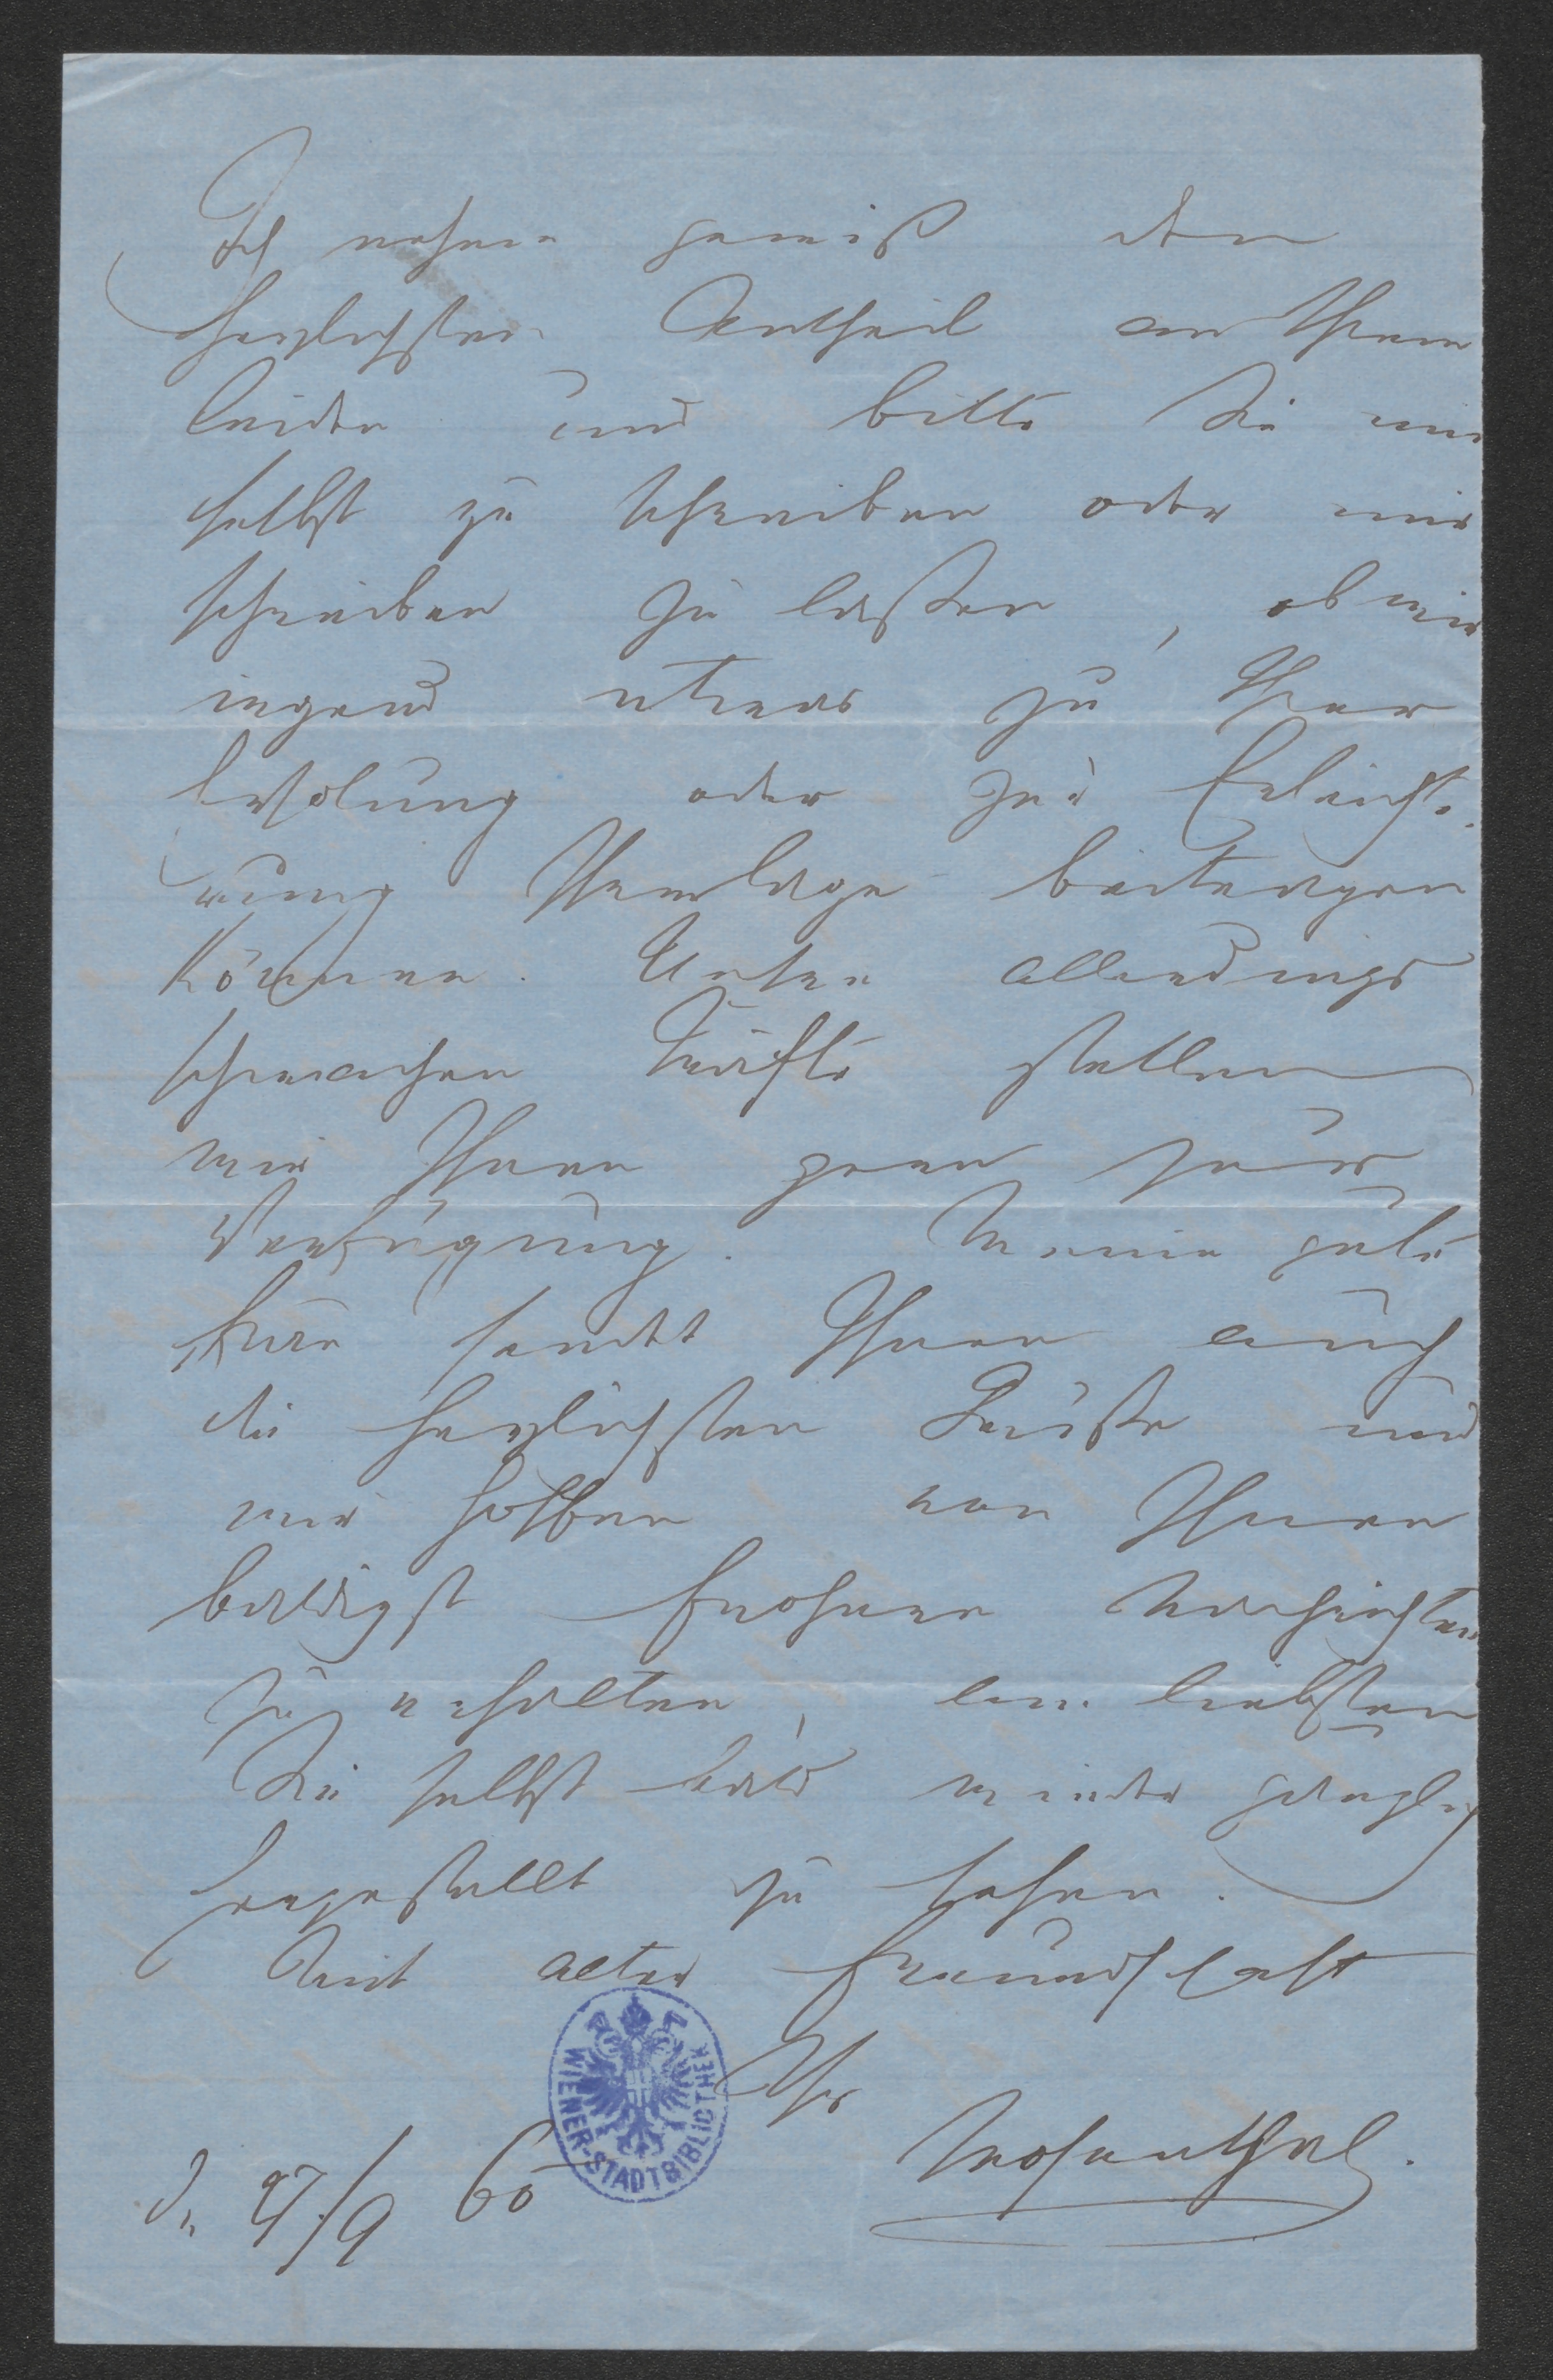 Ich nehme gewiß den
herzlichsten Antheil an Ihrem
Leiden und bitte Sie mir
selbst zu schreiben oder mir
schreiben zu laßen, ob wir
irgend etwas zu Ihrer
Erholung oder zur Erleichte-
rung Ihrer Lage beitragen
können. Unsere allerdings
schwachen Kräfte stellen
wir Ihnen gern zur
Verfügung. Meine gute
Frau sendet Ihnen auch
die herzlichsten Grüße und
wir hoffen von Ihnen
baldigst frohere Nachrichten
zu erhalten, am liebsten
Sie selbst bald wieder gänzlich
hergestellt zu sehen.
Mit alter Freundschaft
Ihr
Mosenthal.
d. 27/9 60
WIENER-STADTBIBLIOTHEK